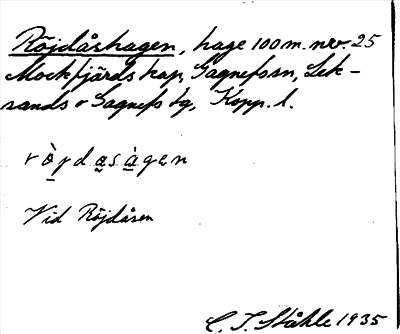 Röjdåshagen, hage 100 m. nv. 25
Mockfjärds kap, Gagnefs sn, Lek-
sands o Gagnefs tg, Kopp. l.
Vid Röjdåsen
C. I. Ståhle 1935